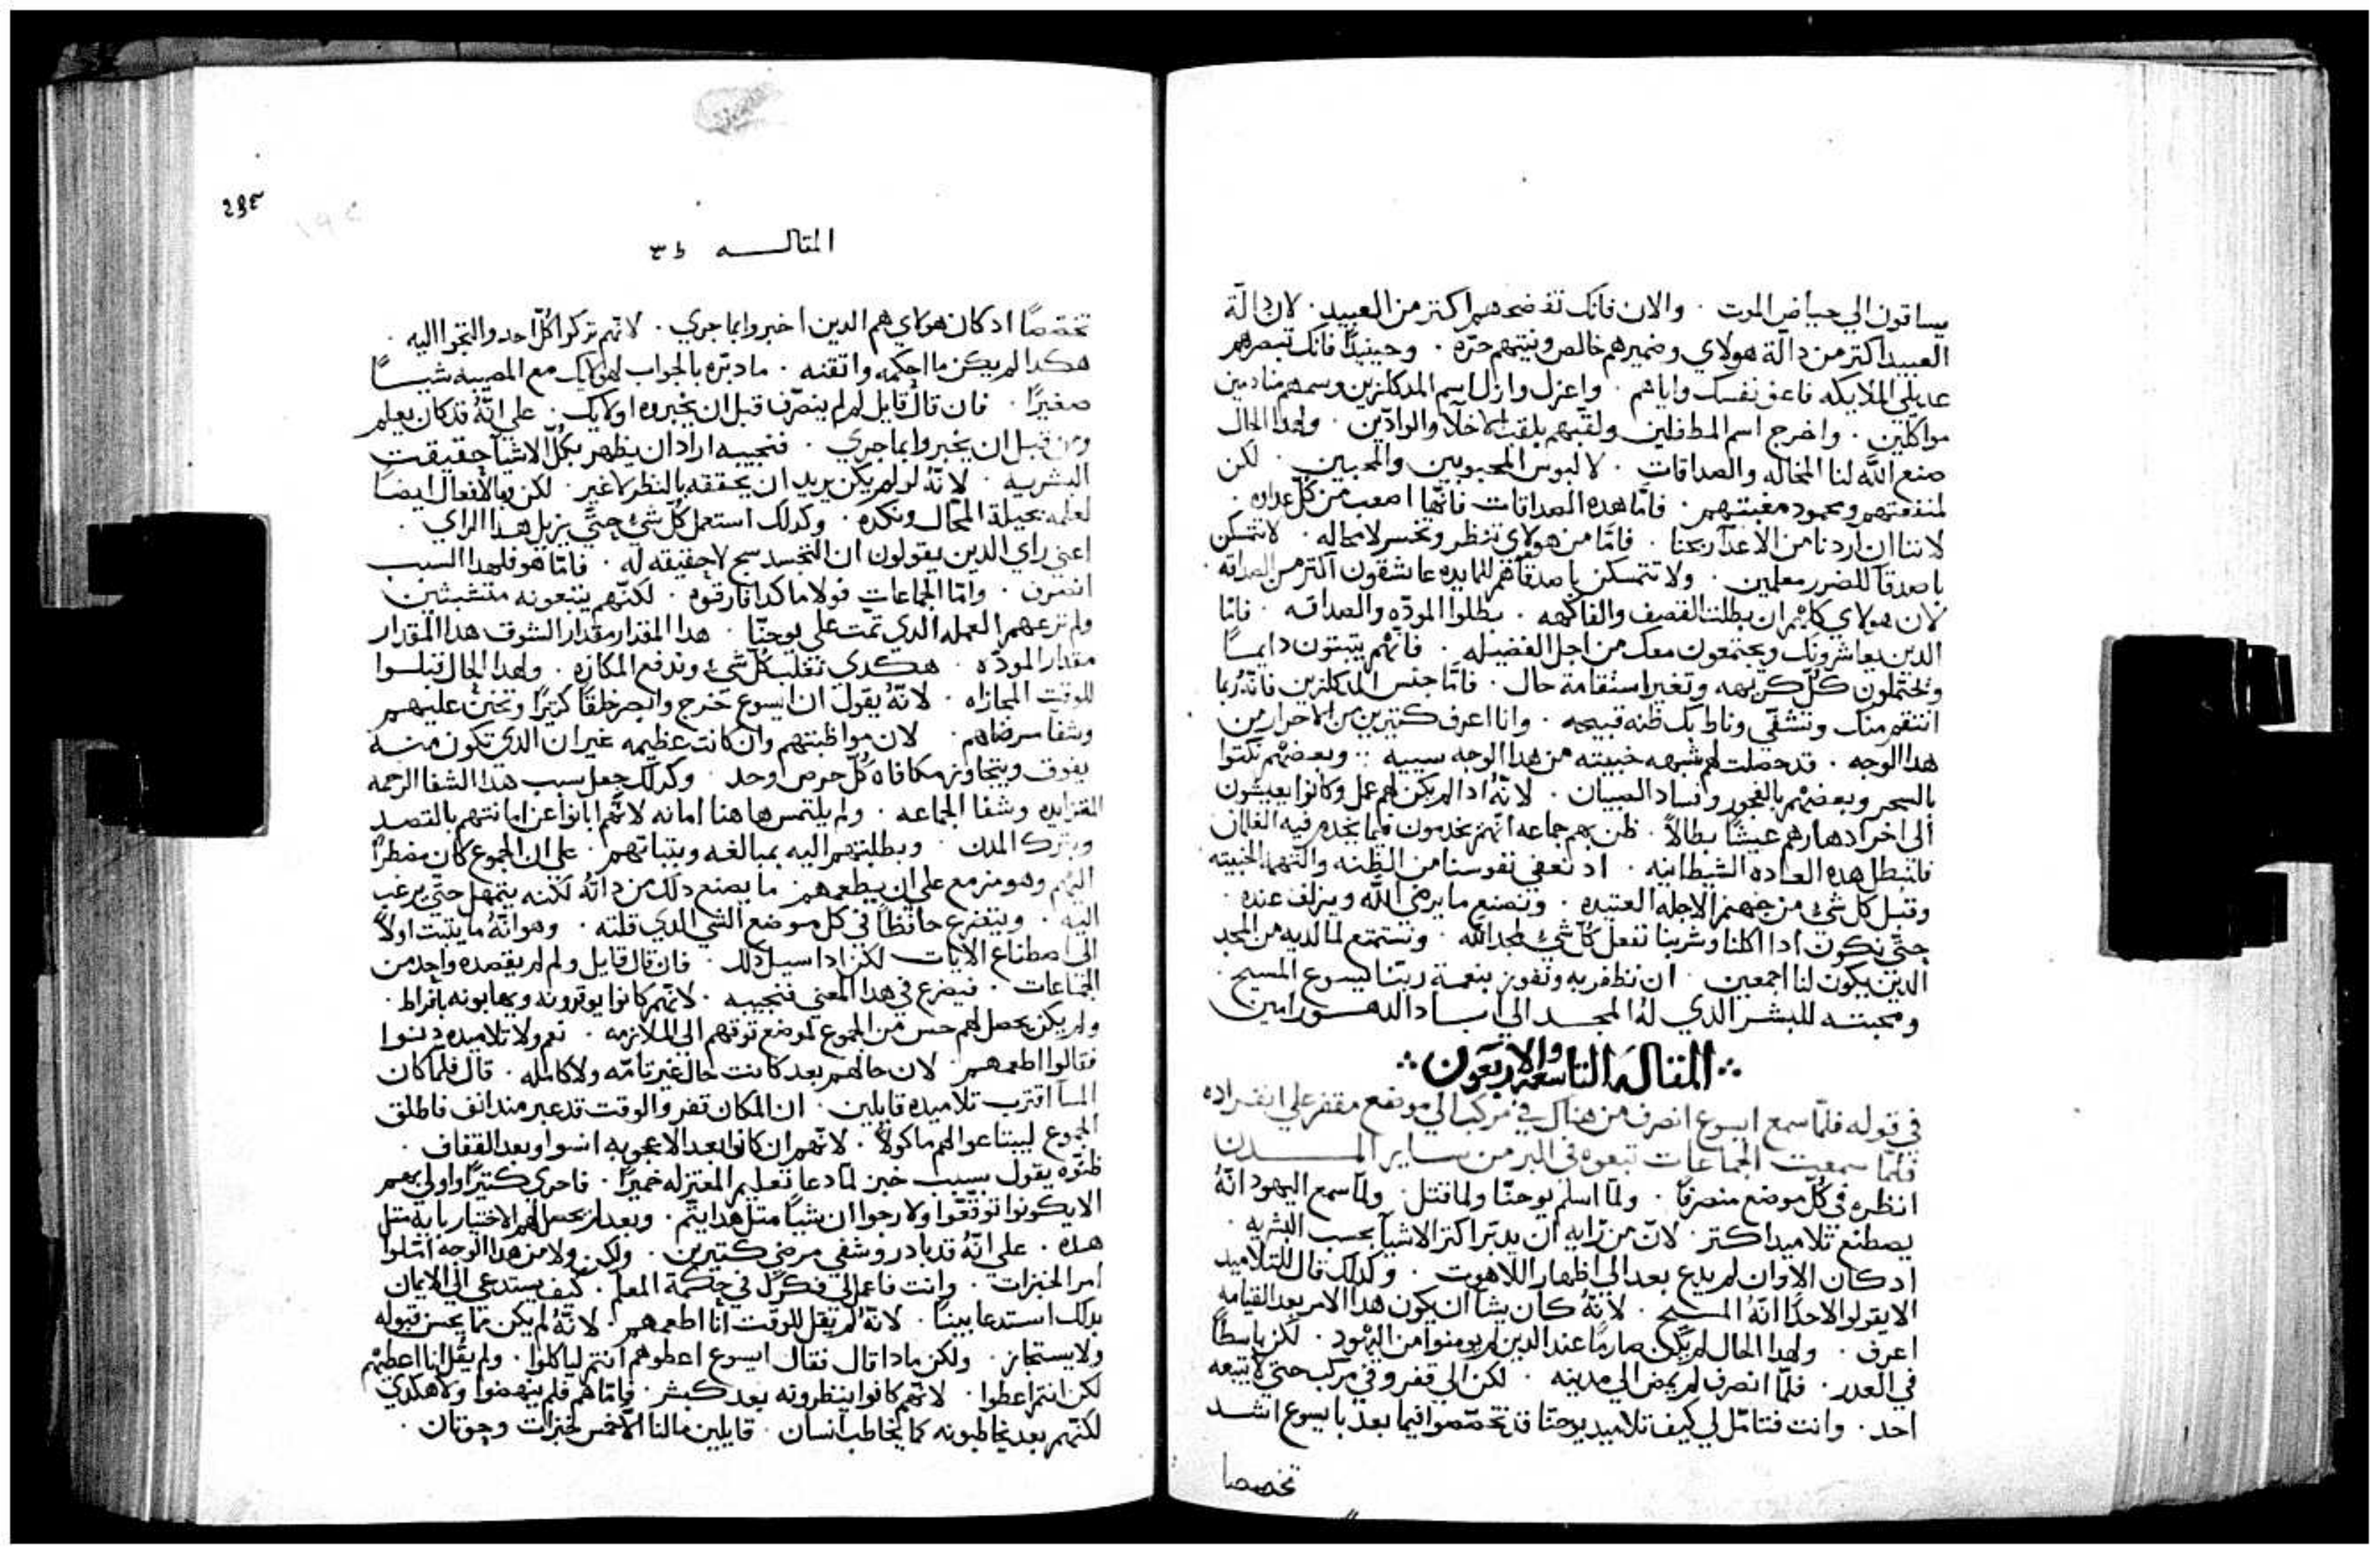 يساقون الي حياض الموت ٠ والان فانك تفضحهم اكتر من العبيد ٠ لان دالة
العبيد اكتر من دالة هولاي وضميرهم خالص ونيتهم حره ٠ وحينيدًا فانك تبصرهم
عديلي الملايكه فاعف نفسك واياهم ٠ واعزل وازل اسم المدكلزين وسمهم منادمين
مواكلين ٠ واخرج اسم المطفلين ولقبهم بلقب الاخلا والوادين ٠ ولهدا الحال
صنع الله لنا المخاله والصداقات ٠ لا لبوس المحبوبين والمحبين ٠ لكن
لمنفعتهم ومحمود مغبتهم ٠ فامّا هده الصداقات فانها اصعب من كل عداوه ٠
لاننا ان اردنا من الاعدا ربحنا ٠ فامّا من هولاي ننظر ونخسر لا محاله ٠ لا تتمسكن
باصدقا للضرر معلمين ٠ ولا تتمسكن باصدقا هم للمايده عاشقون اكتر من الصداقه
لان هولاي كلهم ان بطلت القصيف والفاكهه ٠ بطلوا الموده والصداقه ٠ فامّا
الدين يعاشرونك ويجتمعون معك من اجل الفضيله ٠ فانهم يتبتون دايمًا
ويحتملون كل كريهه وتغير استقامة حال ٠ فامّا جنس المدكلزين فانه ربما
انتقم منك وتشفّي وناط بك ظنه قبيحه ٠ وانا اعرف كتيرين من الاحرار من
هدا الوجه ٠ قد حصلت لهم شبهه خبيته من هدا الوجه سبيه ٠ وبعضهم نكتوا
بالسحر وبعضهم بالفجور وافساد الصبيان ٠ لانه ادا لم يكن لهم عمل وكانوا يعيشون
الي اخر ادهارهم عيشًا بطالاً ٠ ظن بهم جماعه انهم يخدمون فيما يخدم فيه الغلمان
فلنبطل هده العاده الشيطانيه ٠ اد نعفي نفوسنا من الظنه والتهمه الخبيته
وقبل كل شي من جهنم الاجله العتيده ٠ ونصنع ما يرضي الله ويزلف عنده ٠
حتّي نكون ادا اكلنا وشربنا نفعل كل شي لمجد الله ٠ ونستمتع لما لديه من المجد
الدي يكون لنا اجمعين ٠ ان نظفر به ونفوز بنعمة ربنا ايسوع المسيح ٠
ومحبته للبشر الدي له المجد الي اباد الدهور امين
المقاله التاسعه والاربعون
في قوله فلمّا سمع ايسوع انصرف من هناك في مركب الي موضع مقفر علي انفراده
فلمّا سمعت الجماعات تبعوه في البر من ساير المدن
انظره في كل موضع منصرفًا ٠ ولمّا اسلم يوحنّا ولما قتل ٠ ولمّا سمع اليهود انّه
يصطنع تلاميد اكتر ٠ لان من رايه ان يدبر اكتر الاشيا بحسب البشريه ٠
ادكان الاوان لم يدع بعد الي اظهار اللاهوت ٠ وكدلك قال للتلاميد
الا يقولوا لاحد انّه المسيح ٠ لانّه كان يشا ان يكون هدا الامر بعد القيامه
اعرف ٠ ولهدا الحال لم يكن صارمًا عند الدين لم يومنوا من اليهود ٠ لكن باسطًا
في العدر ٠ فلمّا انصرف لم يمض الي مدينه ٠ لكن الي قفر وفي مركب حتي لا يتبعه
احد ٠ وانت فتامّل لي كيف تلاميد يوحنّا قد تخصّصوا فيما بعد بايسوع اشد
تخصصا
المقالـــه
تخصصًا ادكان هولاي هم الدين اخبروا بما جري ٠ لانهم تركوا كل احد والتجوا اليه ٠
هكدا لم يكن ما احكمه واتقنه ٠ ما دبّره بالجواب لهولايك مع المصيبه شيـــا
صغيرًا ٠ فان قال قايل لم لم ينصرف قبل ان يخبروه اولايك ٠ علي انّه قد كان يعلم
ومن قبل ان يخبروا بما جري ٠ فنجيبه اراد ان يظهر بكل الاشيا حقيقت
البشريه ٠ لانّه لو لم يكن يريد ان يحققه بالنظر لا غير ٠ لكن وبالافعال ايضًا
لعلمه بحيلة المحال ونكده ٠ وكدلك استعمل كل شي حتّي يزيل هدا الراي ٠
اعني راي الدين يقولون ان التجسد سح لا حقيقه له ٠ فامّا هو فلهدا السبب
انصرف ٠ وامّا الجماعات فولا هاكدا فارقوه ٠ لكنّهم يتبعونه متشبتين
ولم ترعهم العمله الدي تمّت علي يوحنّا ٠ هدا المقدار مقدار الشوق هدا المقدار
مقدار الموده ٠ هكدي تغلب كل شي وتدفع المكاره ٠ ولهدا الحال قبلوا
للوقت المجازاه ٠ لانّه يقول ان ايسوع خرج وابصر خلقًا كتيرًا وتحنن عليهم
وشفا مرضاهم ٠ لان مواظبتهم وان كانت عظيمه غير ان الدي تكون منــه
يفوق ويتجاوز مكافاة كل حرص اوحد ٠ وكدلك جعل سبب هدا الشفا الرحمه
المتزايده وشفا الجماعه ٠ ولم يلتمس هاهنا امانه لانّهم ابانوا عن امانتهم بالقصد
وبترك المدن ٠ وبطلبتهم اليه بمبالغه وبتباتهم ٠ علي ان الجموع كان مضطرًا
اليهم وهو مزمع علي ان يطعمهم ٠ ما يصنع دلك من داته لكنه يتمهل حتّي يرغب
اليه ٠ ويتضرع حافظًا في كل موضع الشي الدي قلته ٠ وهو انّه ما يتبت اولاً
الي اصطناع الايات لكن ادا سيل دلك ٠ فان قال قايل ولم لم يقصده واحد من
الجماعات ٠ فيضرع في هدا المعني فنجيبه ٠ لانهم كانوا يوقرونه ويهابونه بافراط ٠
ولم يكن يحصل لهم حس من الجموع لموضع توقهم الي الملازمه ٠ نعم ولا تلاميده دنوا
فقالوا اطعمهم ٠ لان حالهم بعد كانت حال غير تامّه ولا كامله ٠ قال فلمّا كان
المسا اقترب تلاميده قايلين ٠ ان المكان قفر والوقت قد عبر مند انف فاطلق
الجموع ليبتاعوا لهم ماكولاً ٠ لانّهم ان كانوا بعد الاعجوبه انسوا وبعد القفاف ٠
ظنّوه يقول بسبب خبز لمّا دعا تعليم المعتزله خميرًا ٠ فاحري كتيرًا واولي بهم
الا يكونوا توقعّوا ولا رجوا ان شيًا متل هدا يتم ٠ وبعد لم يحصل لهم الاختيار باية متل
هده ٠ علي انّه قد بادر وشفي مرضي كتيرين ٠ ولكن ولا من هدا الوجه امّلوا
امر الخبزات ٠ وانت فاعمل لي فكرك في حكمة المعلم ٠ كيف يستدعي الي الايمان
بدلك استدعا بينًا ٠ لانّه لم يقل للوقت انا اطعمهم ٠ لانّه لم يكن ممّا يحسن قبوله
ولا يستجاز ٠ ولكن مادا قال فقال ايسوع اعطوهم انتم لياكلوا ٠ ولم يقل انا اعطيهم
لكن انتم اعطوا ٠ لانّهم كانوا ينظرونه بعد كبشر ٠ فامّا هم فلم ينهضوا ولا هكدي
لكنّهم بعد يخاطبونه كما يخاطب انسان ٠ قايلين مالنا الّا خمس خبزات وحوتان ٠